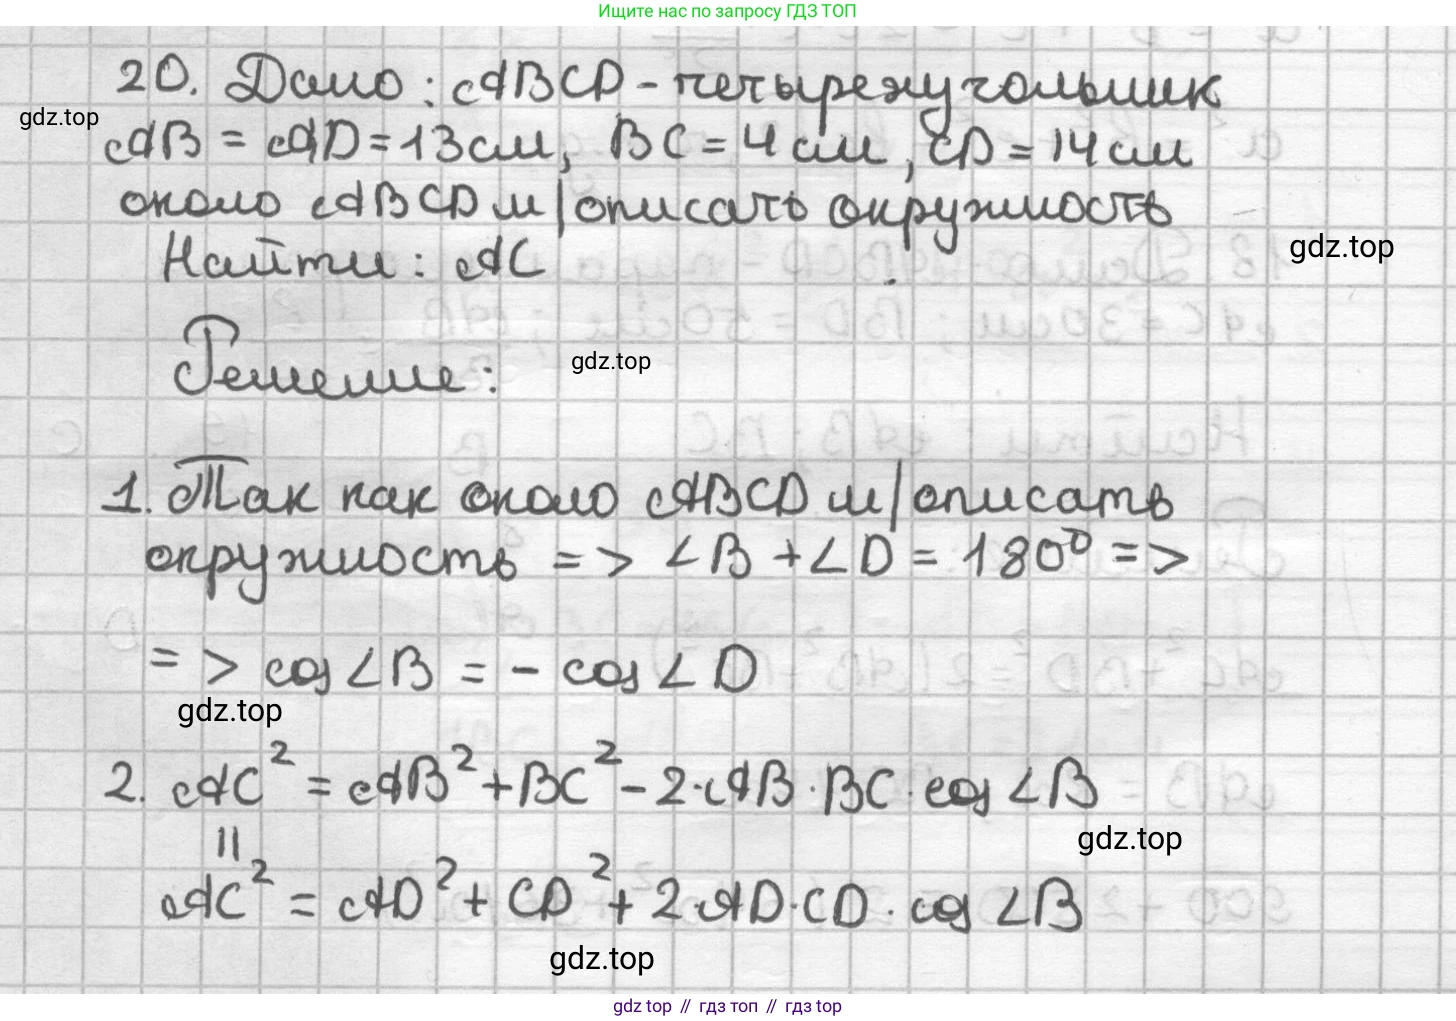 Ищите нас по запросу ГДЗ ТОП
20. Дано: ABCD - четырехугольник
gdz.top
AB = AD = 13 см, BC = 4 см, CD = 14 см
около ABCD м/описать окружность
Найти: AC
gdz.top
Решение:
gdz.top
1. Так как около ABCD м/описать
окружность => ∠B + ∠D = 180° =>
=> cos∠B = - cos∠D
gdz.top
2. AC² = AB² + BC² - 2·AB·BC·cos∠B
gdz.top
||
AC² = AD² + CD² + 2·AD·CD·cos∠B
gdz.top
gdz.top // гдз топ // гдз top